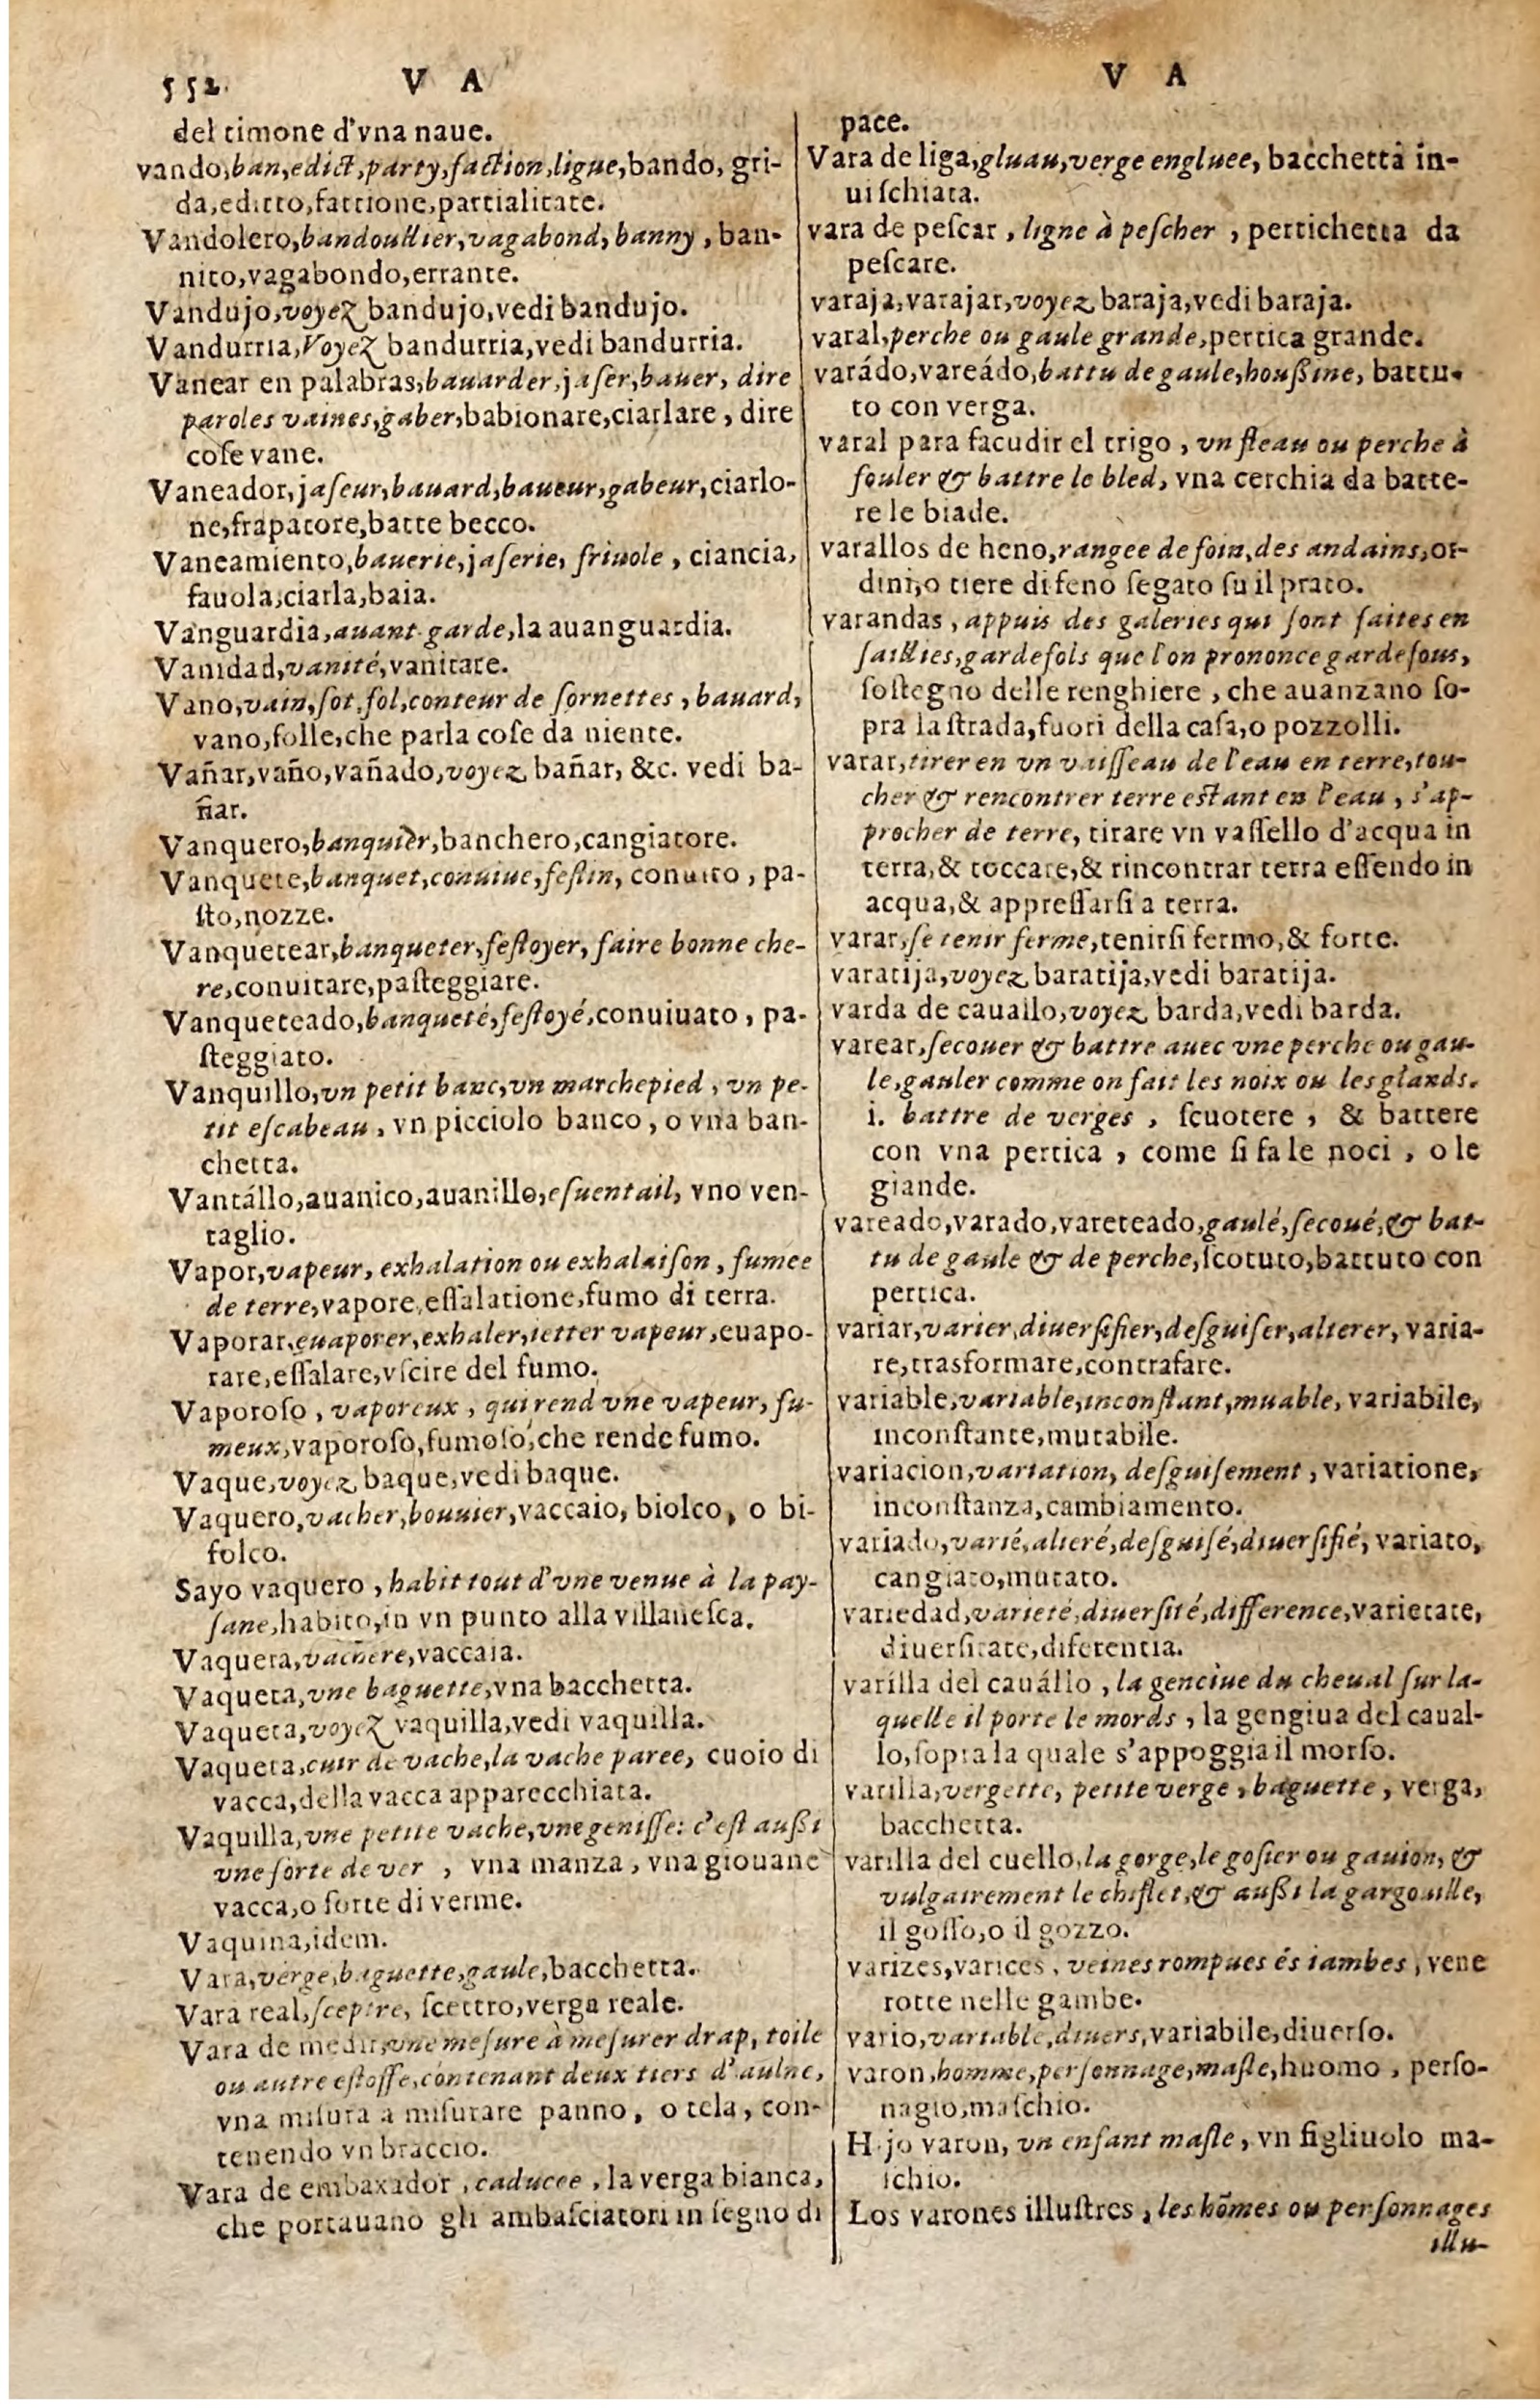 552 V A
del timone d'vna naue.
vando, ban, edict, party, faction, ligue, bando, gri-
da, editto, fattione, partialitate.
Vandolero, bandoullier, vagabond, banny, ban-
nito, vagabondo, errante.
Vandujo, voyez bandujo, vedi bandujo.
Vandurria, Voyez bandurria, vedi bandurria.
Vanear en palabras, bauarder, jaser, bauer, dire
paroles vaines, gaber, babionare, ciarlare, dire
cose vane.
Vaneador, jaseur, bauard, baueur, gabeur, ciarlo-
ne, frapatore, batte becco.
Vaneamiento, bauerie, jaserie, friuole, ciancia,
fauola, ciarla, baia.
Vanguardia, auant garde, la auanguardia.
Vanidad, vanité, vanitate.
Vano, vain, sot, fol, conteur de sornettes, bauard,
vano, folle, che parla cose da niente.
Vañar, vaño, vañado, voyez bañar, &c. vedi ba-
ñar.
Vanquero, banquier, banchero, cangiatore.
Vanquete, banquet, conuiue, festin, conuito, pa-
sto, nozze.
Vanquetear, banqueter, festoyer, faire bonne che-
re, conuitare, pasteggiare.
Vanqueteado, banqueté, festoyé, conuiuato, pa-
steggiato.
Vanquillo, vn petit banc, vn marchepied, vn pe-
tit escabeau, vn picciolo banco, o vna ban-
chetta.
Vantállo, auanico, auanillo, esuentail, vno ven-
taglio.
Vapor, vapeur, exhalation ou exhalaison, fumee
de terre, vapore, essalatione, fumo di terra.
Vaporar, euaporer, exhaler, ietter vapeur, euapo-
rare, essalare, vscire del fumo.
Vaporoso, vaporeux, qui rend vne vapeur, fu-
meux, vaporoso, fumoso, che rende fumo.
Vaque, voyez baque, vedi baque.
Vaquero, vacher, bouuier, vaccaio, biolco, o bi-
folco.
Sayo vaquero, habit tout d'vne venue à la pay-
sane, habito, in vn punto alla villanesca.
Vaquera, vachere, vaccaia.
Vaqueta, vne baguette, vna bacchetta.
Vaqueta, voyez vaquilla, vedi vaquilla.
Vaqueta, cuir de vache, la vache paree, cuoio di
vacca, della vacca apparecchiata.
Vaquilla, vne petite vache, vne genisse: c'est aussi
vne sorte de ver, vna manza, vna giouane
vacca, o sorte di verme.
Vaquina, idem.
Vara, verge, baguette, gaule, bacchetta.
Vara real, sceptre, scettro, verga reale.
Vara de medir, vne mesure à mesurer drap, toile
ou autre estoffe, contenant deux tiers d'aulne,
vna misura a misurare panno, o tela, con-
tenendo vn braccio.
Vara de embaxador, caducee, la verga bianca,
che portauano gli ambasciatori in segno di
V A
pace.
Vara de liga, gluau, verge engluee, bacchetta in-
uischiata.
vara de pescar, ligne à pescher, pertichetta da
pescare.
varaja, varajar, voyez baraja, vedi baraja.
varal, perche ou gaule grande, pertica grande.
varádo, vareádo, battu de gaule, houssine, battu-
to con verga.
varal para facudir el trigo, vn fleau ou perche à
fouler & battre le bled, vna cerchia da batte-
re le biade.
varallos de heno, rangee de foin, des andains, or-
dini, o tiere di feno segato su il prato.
varandas, appuis des galeries qui sont faites en
saillies, gardefols que l'on prononce gardefous,
sostegno delle renghiere, che auanzano so-
pra la strada, fuori della casa, o pozzolli.
varar, tirer en vn vaisseau de l'eau en terre, tou-
cher & rencontrer terre estant en l'eau, s'ap-
procher de terre, tirare vn vassello d'acqua in
terra, & toccare, & rincontrar terra essendo in
acqua, & appressarsi a terra.
varar, se tenir ferme, tenirsi fermo, & forte.
varatija, voyez baratija, vedi baratija.
varda de cauallo, voyez barda, vedi barda.
varear, secouer & battre auec vne perche ou gau-
le, gauler comme on fait les noix ou les glands.
i. battre de verges, scuotere, & battere
con vna pertica, come si fa le noci, o le
giande.
vareado, varado, vareteado, gaulé, secoué, & bat-
tu de gaule & de perche, scotuto, battuto con
pertica.
variar, varier, diuersifier, desguiser, alterer, varia-
re, trasformare, contrafare.
variable, variable, inconstant, muable, variabile,
inconstante, mutabile.
variacion, variation, desguisement, variatione,
inconstanza, cambiamento.
variado, varié, alteré, desguisé, diuersifié, variato,
cangiato, mutato.
variedad, varieté, diuersité, difference, varietate,
diuersitate, diferentia.
varílla del cauállo, la genciue du cheual sur la-
quelle il porte le mords, la gengiua del caual-
lo, sopra la quale s'appoggia il morso.
varilla, vergette, petite verge, baguette, verga,
bacchetta.
varilla del cuello, la gorge, le gosier ou gauion, &
vulgairement le chiflet, & aussi la gargouille,
il gosso, o il gozzo.
varizes, varices, veines rompues és iambes, vene
rotte nelle gambe.
vario, variable, diuers, variabile, diuerso.
varon, homme, personnage, masle, huomo, perso-
nagio, maschio.
Hijo varon, vn enfant masle, vn figliuolo ma-
schio.
Los varones illustres, les hõmes ou personnages
illu-